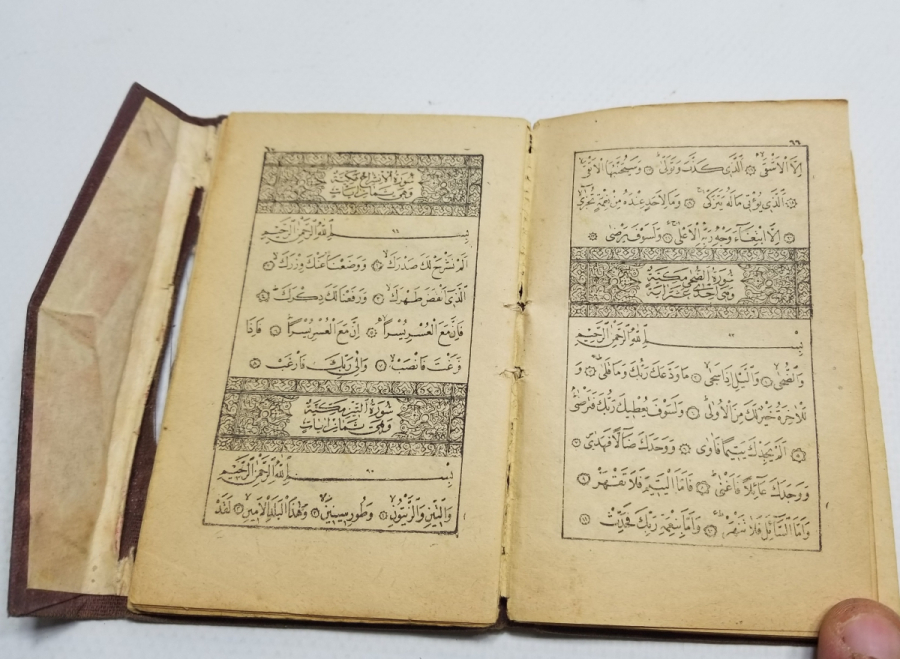 اِلَّا الْاَشْقَىۙ الَّذِى كَذَّبَ وَتَوَلّٰىۜ وَسَيُجَنَّبُهَا الْاَتْقَىۙ
اَلَّذِى يُؤْتِى مَالَهُ يَتَزَكّٰىۚ وَمَا لِاَحَدٍ عِنْدَهُ مِنْ نِعْمَةٍ تُجْزٰىۙ
اِلَّا ابْتِغَاءَ وَجْهِ رَبِّهِ الْاَعْلٰىۚ وَلَسَوْفَ يَرْضٰى
سُورَةُ الضُّحٰى مَكِّيَّةٌ
وَهِىَ اِحْدٰى عَشَرَ اٰيَةً
بِسْمِ اللّٰهِ الرَّحْمٰنِ الرَّحِيمِ
وَالضُّحٰىۙ وَالَّيْلِ اِذَا سَجٰىۙ مَا وَدَّعَكَ رَبُّكَ وَمَا قَلٰىۜ وَ
لَلْاٰخِرَةُ خَيْرٌ لَكَ مِنَ الْاُولٰىۜ وَلَسَوْفَ يُعْطِيكَ رَبُّكَ فَتَرْضٰىۜ
اَلَمْ يَجِدْكَ يَتِيمًا فَاٰوٰى وَوَجَدَكَ ضَالًّا فَهَدٰى
وَوَجَدَكَ عَائِلًا فَاَغْنٰىۜ فَاَمَّا الْيَتِيمَ فَلَا تَقْهَرْۜ
وَاَمَّا السَّائِلَ فَلَا تَنْهَرْۜ وَاَمَّا بِنِعْمَةِ رَبِّكَ فَحَدِّثْ
سُورَةُ الْاِنْشِرَاحِ مَكِّيَّةٌ
وَهِىَ ثَمَانُ اٰيَاتٍ
بِسْمِ اللّٰهِ الرَّحْمٰنِ الرَّحِيمِ
اَلَمْ نَشْرَحْ لَكَ صَدْرَكَۙ وَوَضَعْنَا عَنْكَ وِزْرَكَۙ
اَلَّذِى اَنْقَضَ ظَهْرَكَۙ وَرَفَعْنَا لَكَ ذِكْرَكَۜ
فَاِنَّ مَعَ الْعُسْرِ يُسْرًاۙ اِنَّ مَعَ الْعُسْرِ يُسْرًاۜ فَاِذَا
فَرَغْتَ فَانْصَبْۙ وَاِلٰى رَبِّكَ فَارْغَبْ
سُورَةُ التِّينِ مَكِّيَّةٌ
وَهِىَ ثَمَانُ اٰيَاتٍ
بِسْمِ اللّٰهِ الرَّحْمٰنِ الرَّحِيمِ
وَالتِّينِ وَالزَّيْتُونِۙ وَطُورِ سِينِينَۙ وَهٰذَا الْبَلَدِ الْاَمِينِۙ لَقَدْ